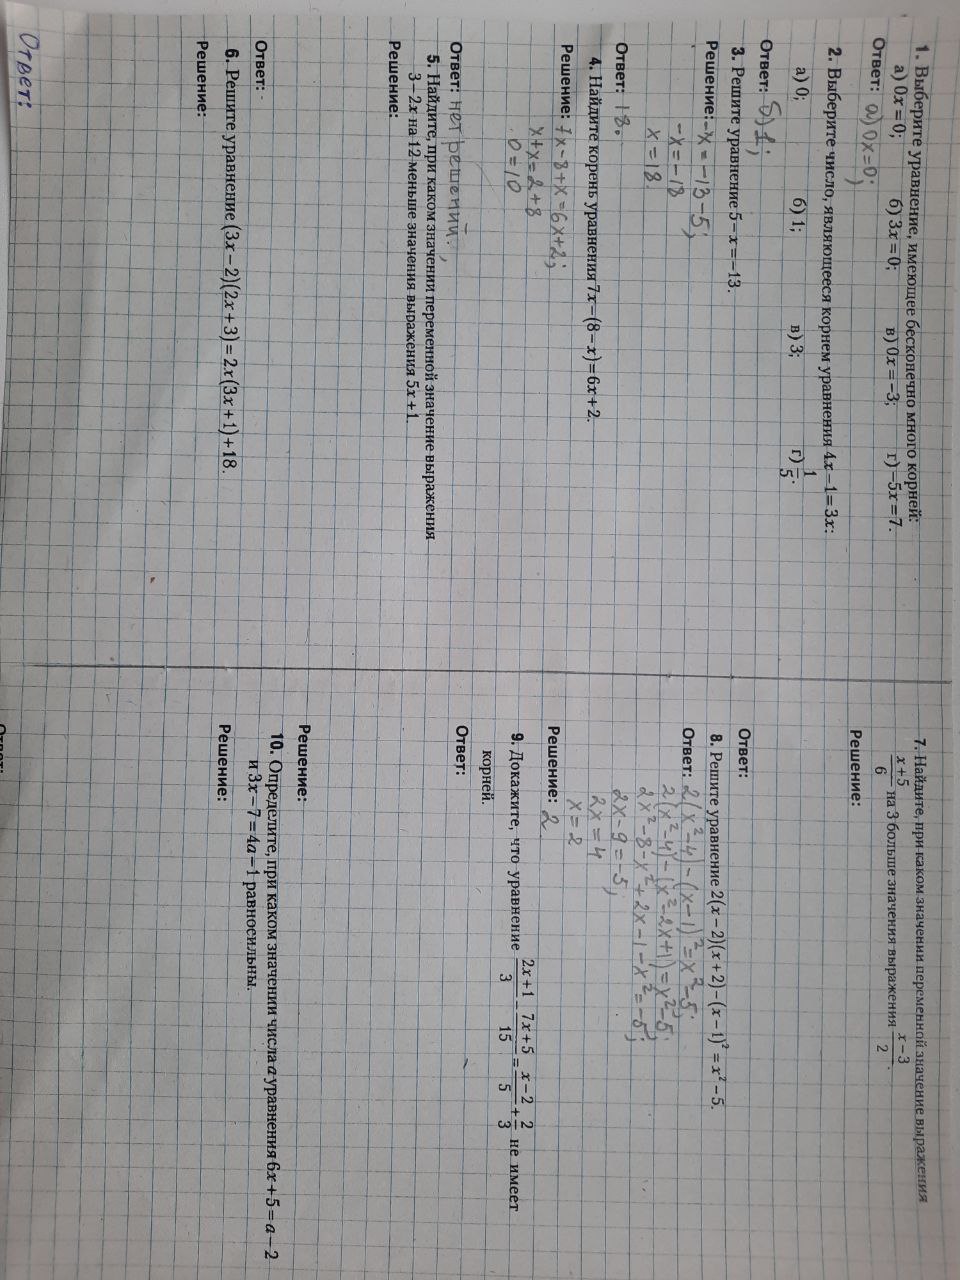 1. Выберите уравнение, имеющее бесконечно много корней:
а) 0x = 0; б) 3x = 0; в) 0x = −3; г) −5x = 7.
Ответ: а) 0x=0;
2. Выберите число, являющееся корнем уравнения 4x − 1 = 3x:
а) 0; б) 1; в) 3; г) 1/5.
Ответ: б) 1;
3. Решите уравнение 5 − x = −13.
Решение: -x = -13-5;
-x = -18
x = 18.
Ответ: 18.
4. Найдите корень уравнения 7x − (8 − x) = 6x + 2.
Решение: 7x-8+x=6x+2;
x+x=2+8
0=10
Ответ: нет решений.
5. Найдите, при каком значении переменной значение выражения
3 − 2x на 12 меньше значения выражения 5x + 1.
Решение:
Ответ:
6. Решите уравнение (3x − 2)(2x + 3) = 2x(3x + 1) + 18.
Решение:
Ответ:
7. Найдите, при каком значении переменной значение выражения
(x + 5)/6 на 3 больше значения выражения (x − 3)/2.
Решение:
Ответ:
8. Решите уравнение 2(x − 2)(x + 2) − (x − 1)² = x² − 5.
Ответ: 2(x²-4)-(x-1)²=x²-5;
2(x²-4)-(x²-2x+1)=x²-5;
2x²-8-x²+2x-1-x²=-5;
2x-9=-5;
2x=4
x=2
Решение: 2
9. Докажите, что уравнение (2x + 1)/3 − (7x + 5)/15 = (x − 2)/5 + 2/3 не имеет
корней.
Ответ:
Решение:
10. Определите, при каком значении числа a уравнения 6x + 5 = a − 2
и 3x − 7 = 4a − 1 равносильны.
Решение:
Ответ: